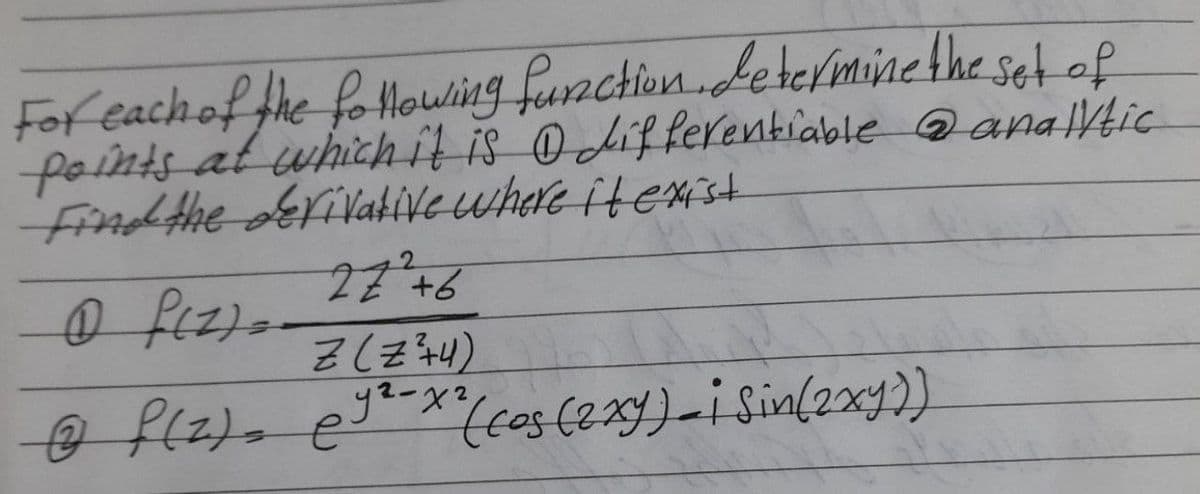 For each of the following function. determine the set of
points at which it is ① differentiable ② analytic
Find the derivative where it exist
① f(z) = 2z²+6 / z(z²+4)
② f(z) = e^(y²-x²) (cos(2xy) - i sin(2xy))